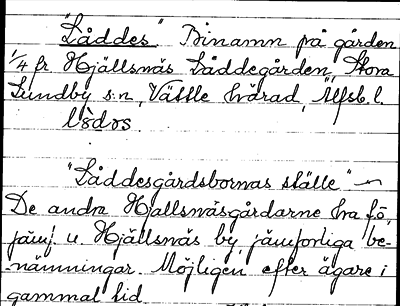 "Låddes" Binamn på gården
1/4 fr. Hjällsnäs Låddegården, Stora
Lundby s:n, Vättle härad, Älfsb. l.
lòdəs.
"Låddesgårdsbornas ställe"
De andra Hjällsnäsgårdarne ha fö,
jämf. u. Hjällsnäs by, jämförliga be-
nämningar. Möjligen efter ägare i
gammal tid.